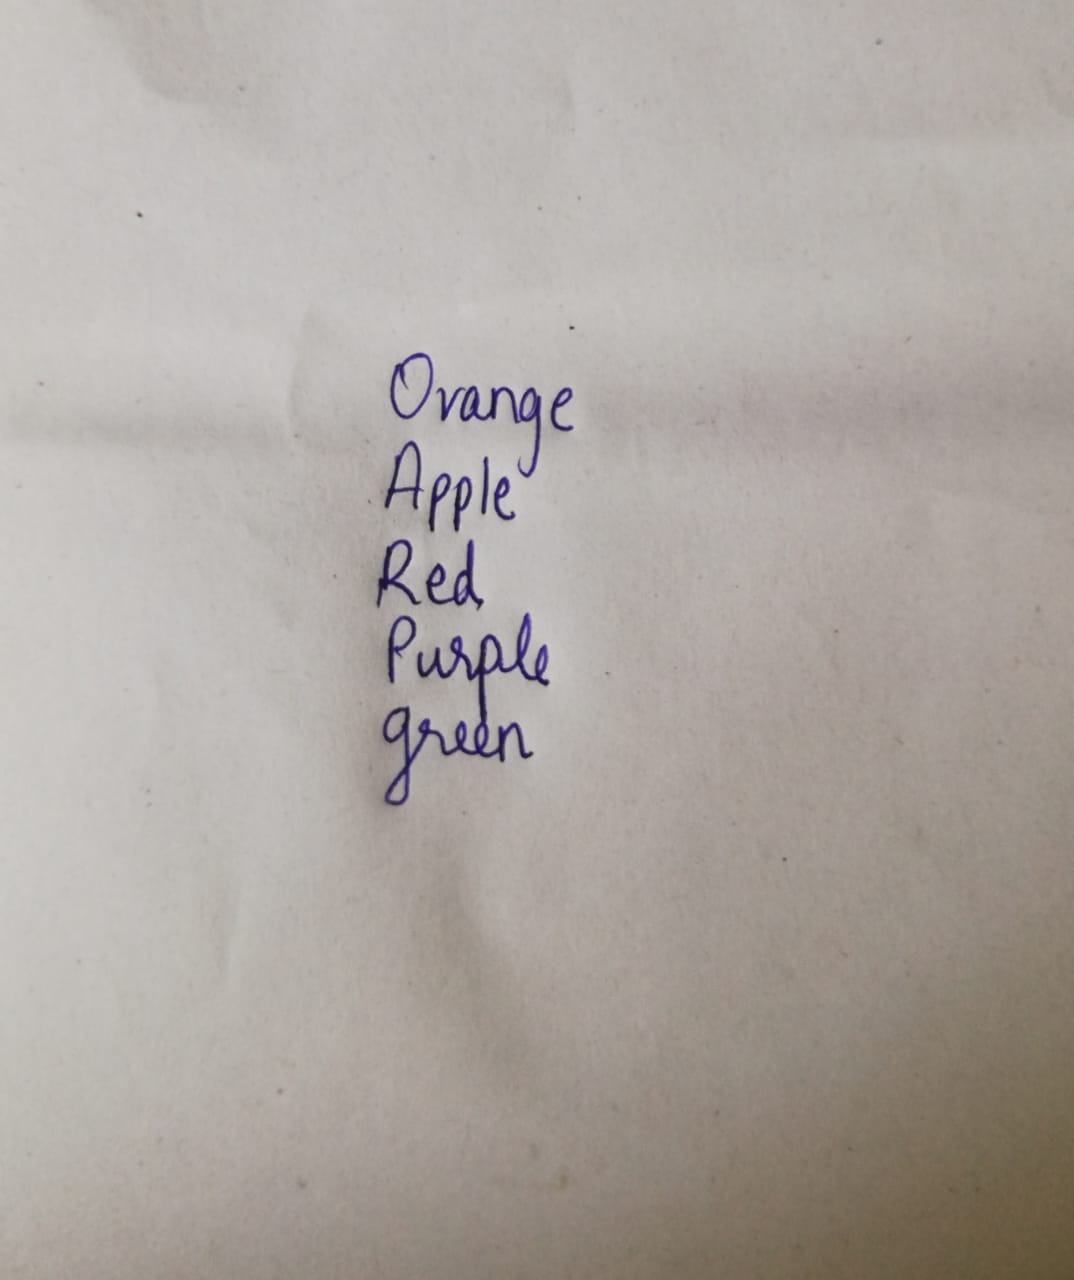 Orange
Apple
Red
Purple
green